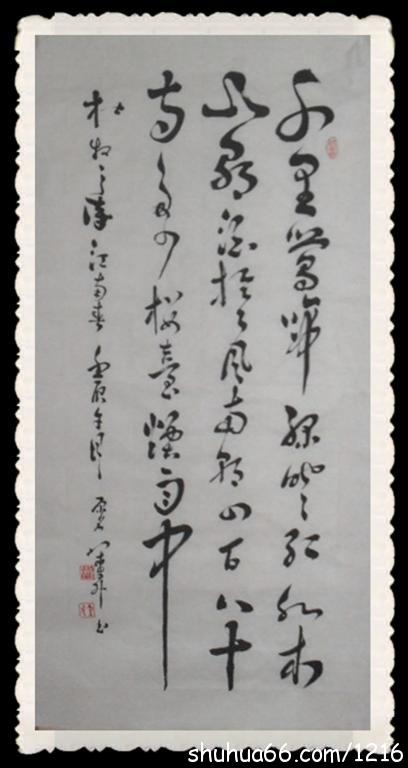 千里鶯啼綠映紅水村
山郭酒旗風南朝四百八十
寺多少樓臺煙雨中
杜牧之詩江南春
shuhua66.com/1216